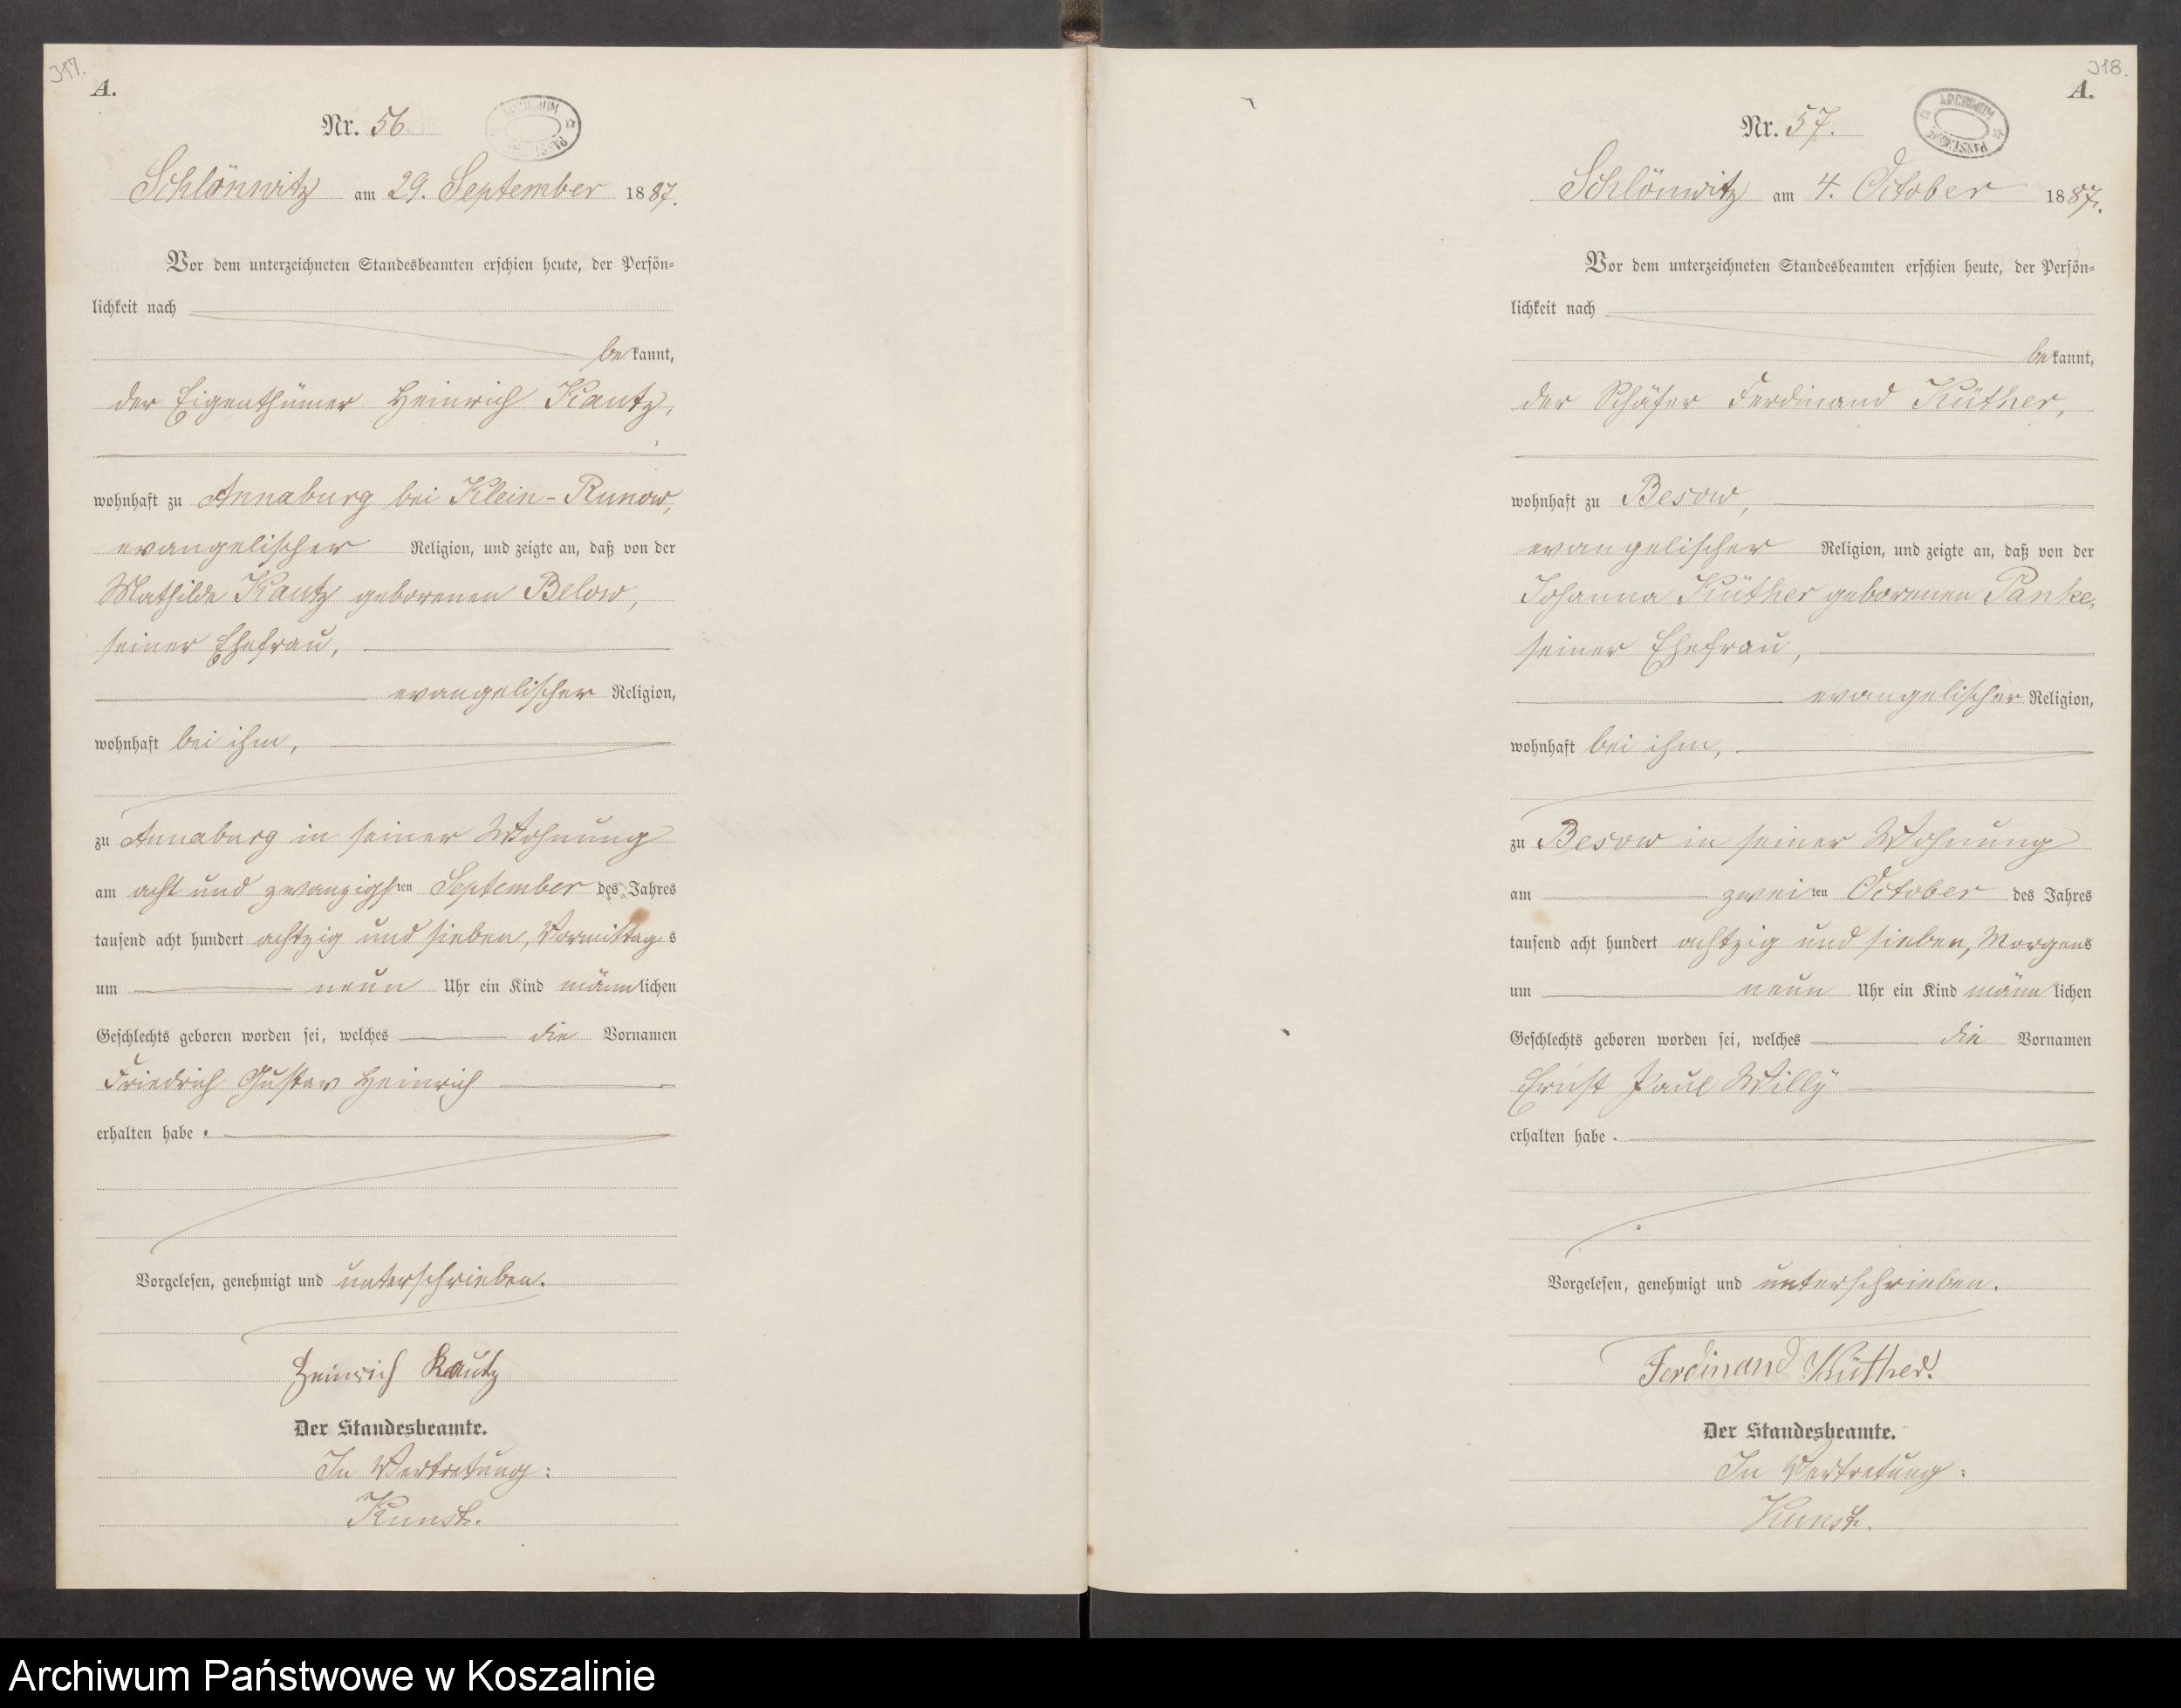 317.
A.
Nr. 56.
ARCHIWUM PAŃSTWOWE
Schlönnwitz am 29. September 1887.
Vor dem unterzeichneten Standesbeamten erschien heute, der Persön=
lichkeit nach
bekannt,
der Eigenthümer Heinrich Kautz,
wohnhaft zu Annaburg bei Klein-Runow,
evangelischer Religion, und zeigte an, daß von der
Mathilde Kautz geborenen Below,
seiner Ehefrau,
evangelischer Religion,
wohnhaft bei ihm,
zu Annaburg in seiner Wohnung
am acht und zwanzigsten September des Jahres
tausend acht hundert achtzig und sieben, Vormittags
um neun Uhr ein Kind männlichen
Geschlechts geboren worden sei, welches die Vornamen
Friedrich Gustav Heinrich
erhalten habe.
Vorgelesen, genehmigt und unterschrieben.
Heinrich Kautz
Der Standesbeamte.
In Vertretung:
Kunst.
318.
A.
Nr. 57.
ARCHIWUM PAŃSTWOWE
Schlönwitz am 4. October 1887.
Vor dem unterzeichneten Standesbeamten erschien heute, der Persön=
lichkeit nach
bekannt,
der Schäfer Ferdinand Küther,
wohnhaft zu Besow,
evangelischer Religion, und zeigte an, daß von der
Johanna Küther geborenen Panke,
seiner Ehefrau,
evangelischer Religion,
wohnhaft bei ihm,
zu Besow in seiner Wohnung
am zweiten October des Jahres
tausend acht hundert achtzig und sieben, Morgens
um neun Uhr ein Kind männlichen
Geschlechts geboren worden sei, welches die Vornamen
Ernst Paul Willy
erhalten habe.
Vorgelesen, genehmigt und unterschrieben.
Ferdinand Küther.
Der Standesbeamte.
In Vertretung:
Kunst.
Archiwum Państwowe w Koszalinie